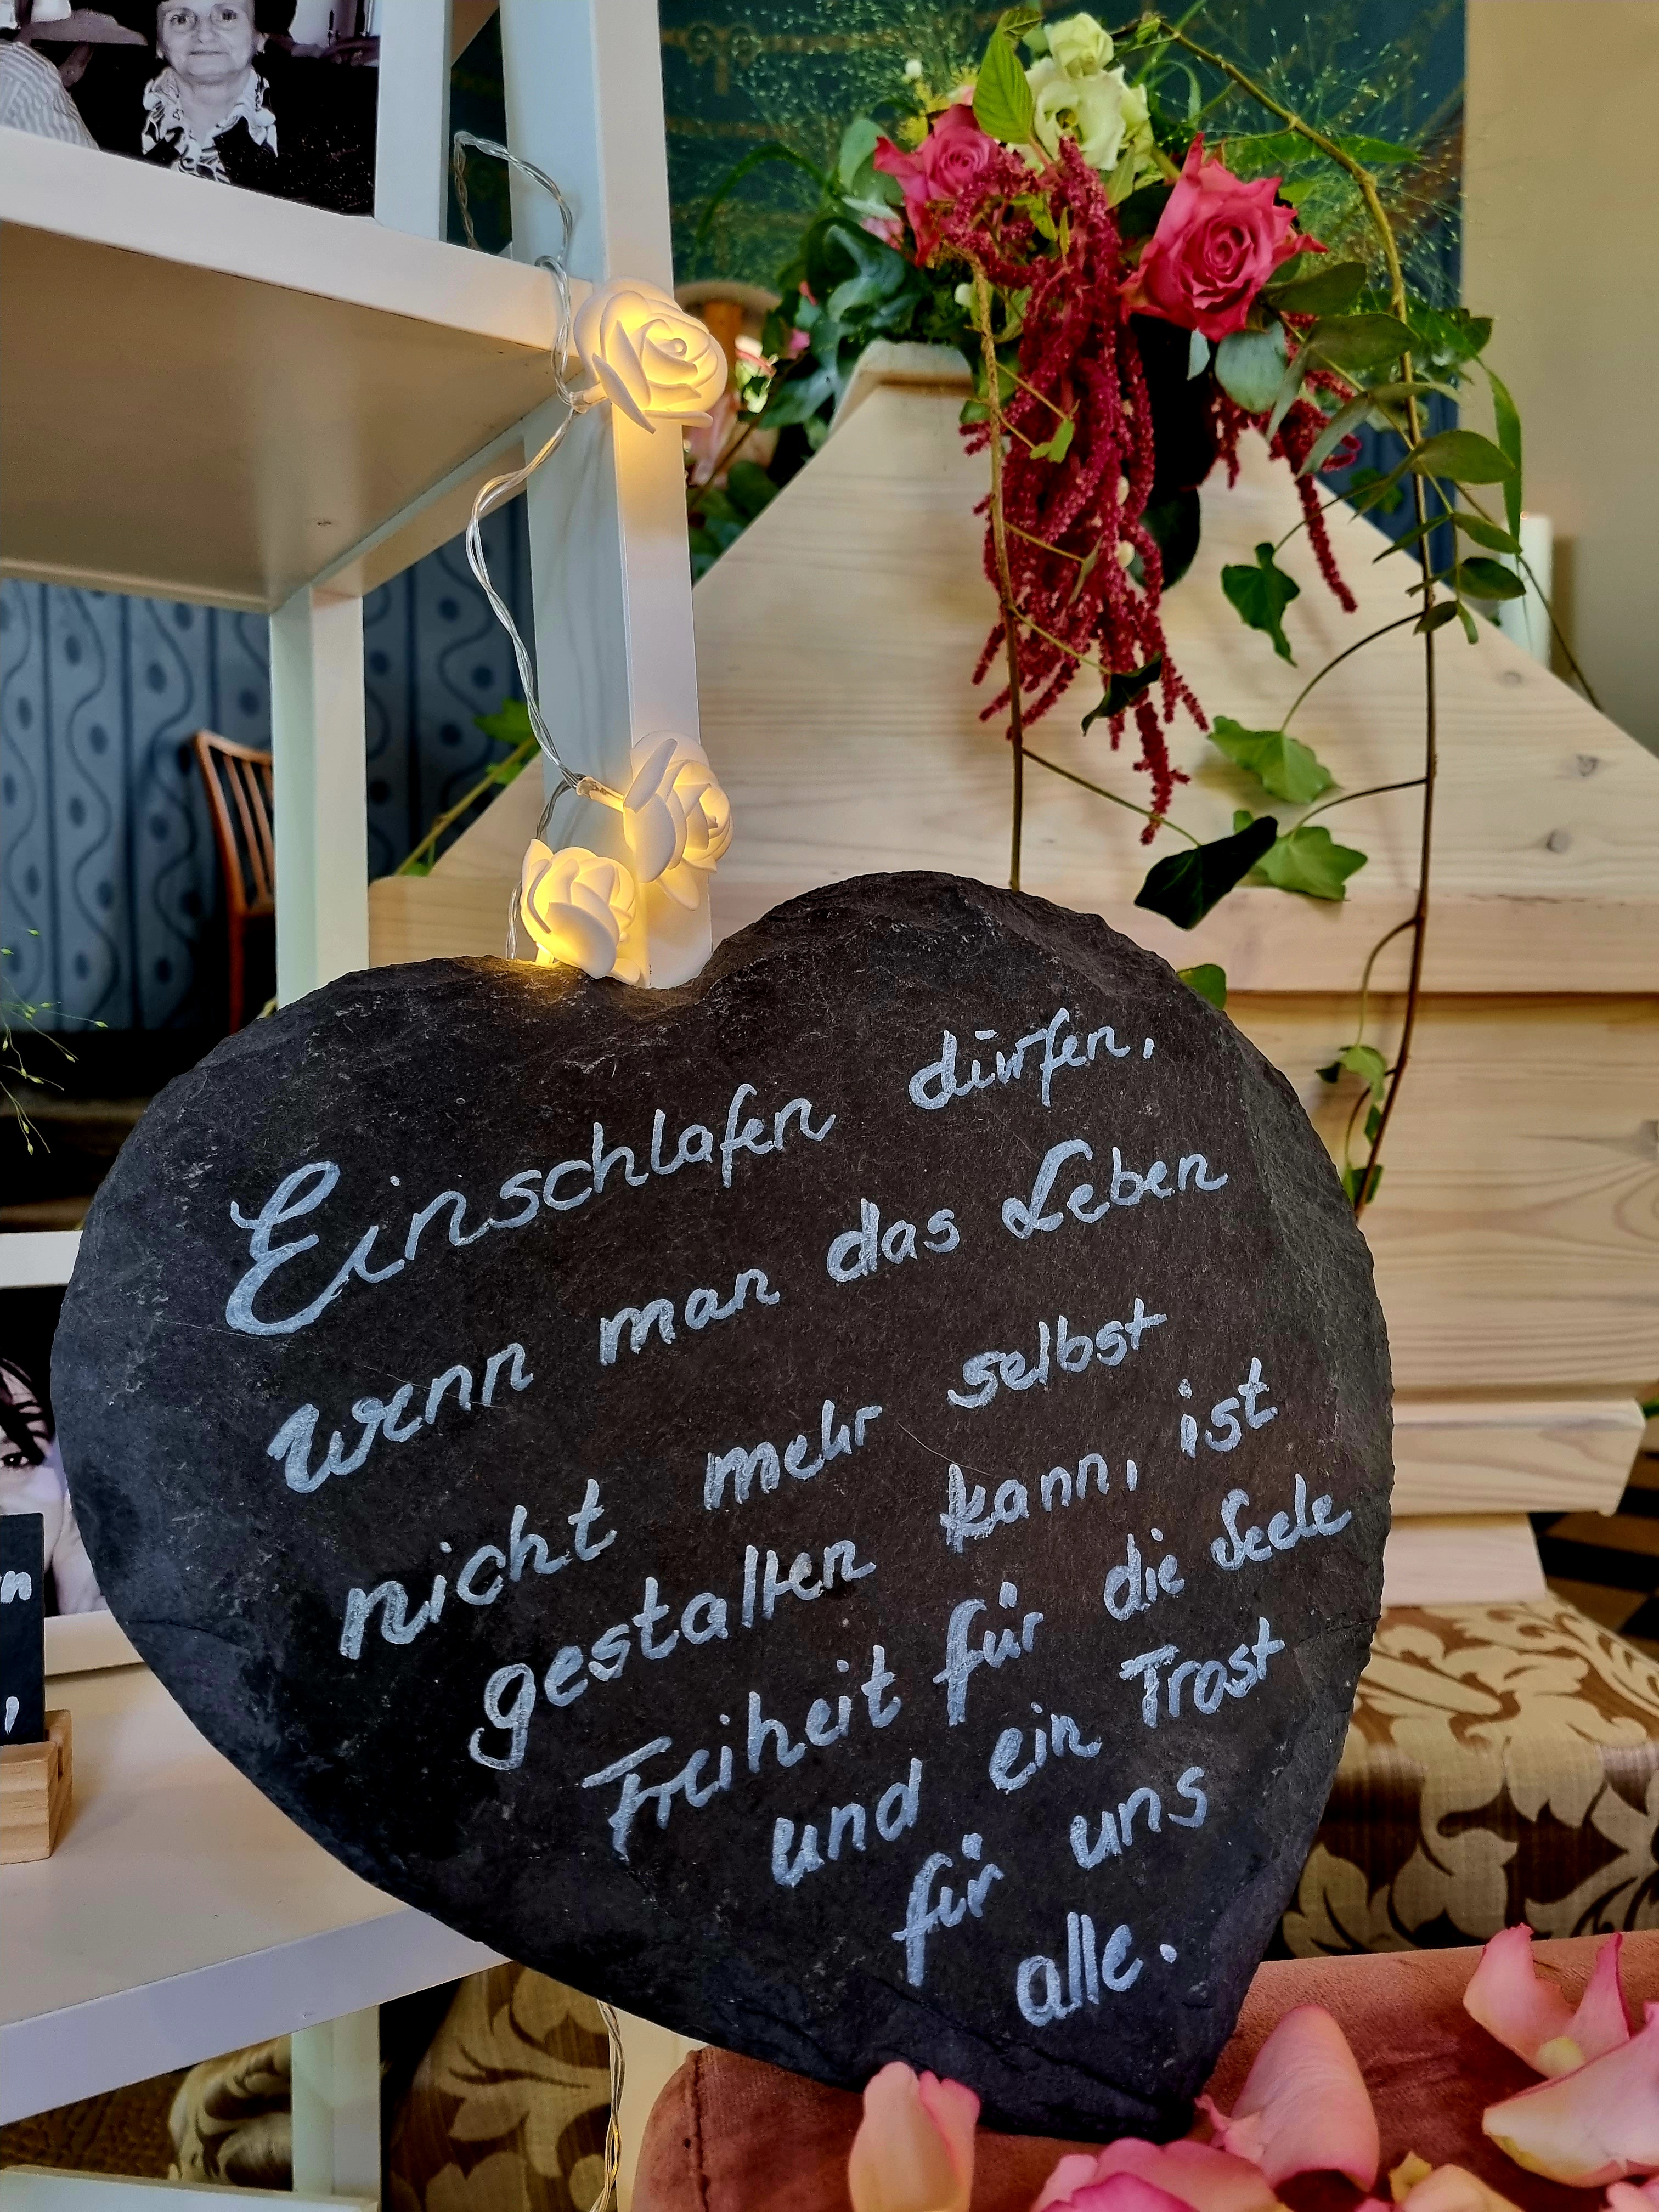 Einschlafen dürfen,
wenn man das Leben
nicht mehr selbst
gestalten kann, ist
Freiheit für die Seele
und ein Trost
für uns
alle.